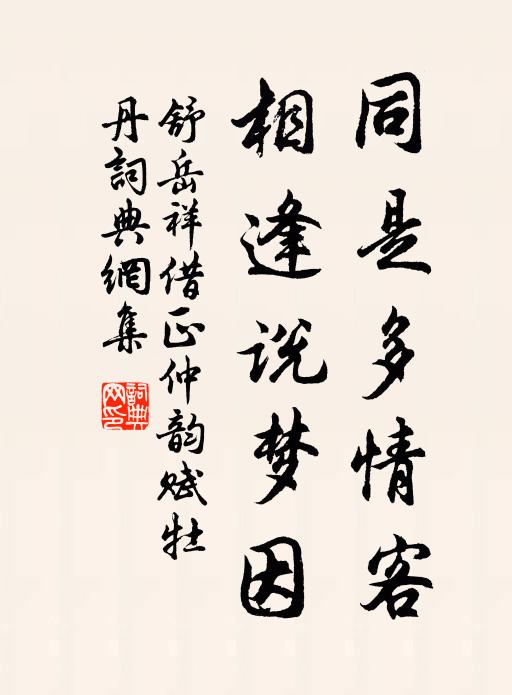 同是多情客
相逢说梦因
舒岳祥借正仲韵赋牡
丹詞典網集
詞典
网印